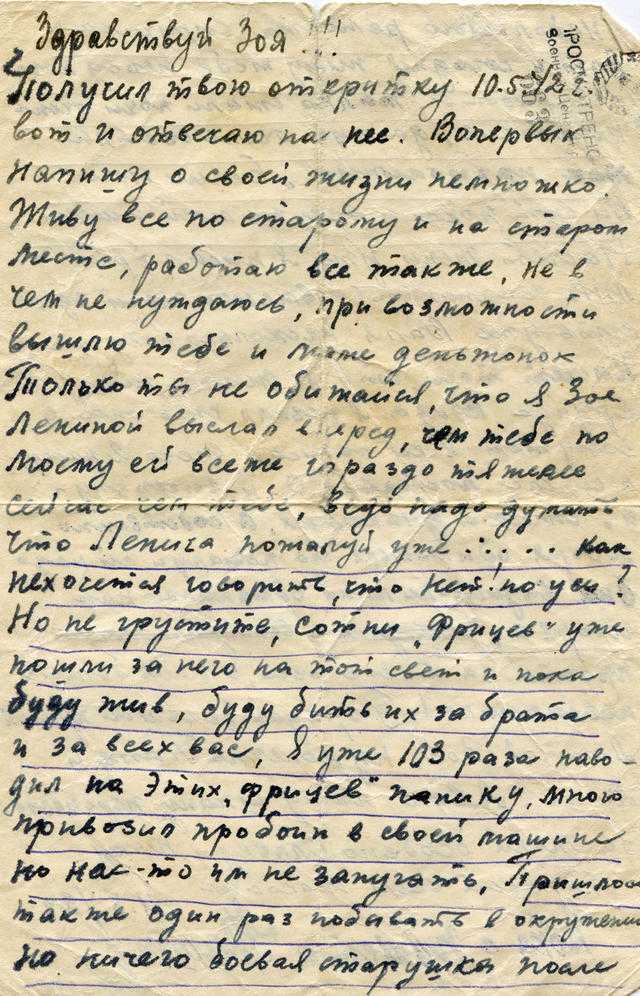 Здравствуй Зоя!!!
Получил твою откритку 10.5.42.
вот и отвечаю на нее. Вопервых
напишу о своей жизни немножко.
Живу все по старому и на старом
месте, работаю все также, не в
чем не нуждаюсь, при возможности
вышлю тебе и маме деньжонок
Только ты не обижайся, что я Зое
Лениной выслал вперед, чем тебе по
моему ей все же гораздо тяжелее
сейчас чем тебе, ведь надо думать
что Ленича пожалуй уже :.... как
нехочется говорить, что нет! но увы?
Но не грустите, сотни „Фрицев" уже
пошли за него на тот свет и пока
буду жив, буду бить их за брата
и за всех вас, Я уже 103 раза наво-
дил на этих „фрицев" панику, много
привозил пробоин в своей машине
но нас-то им не запугать, Пришлось
также один раз побывать в окружении
но ничего боевая старушка после
ПРОСМОТРЕНО
Военной Цензурой